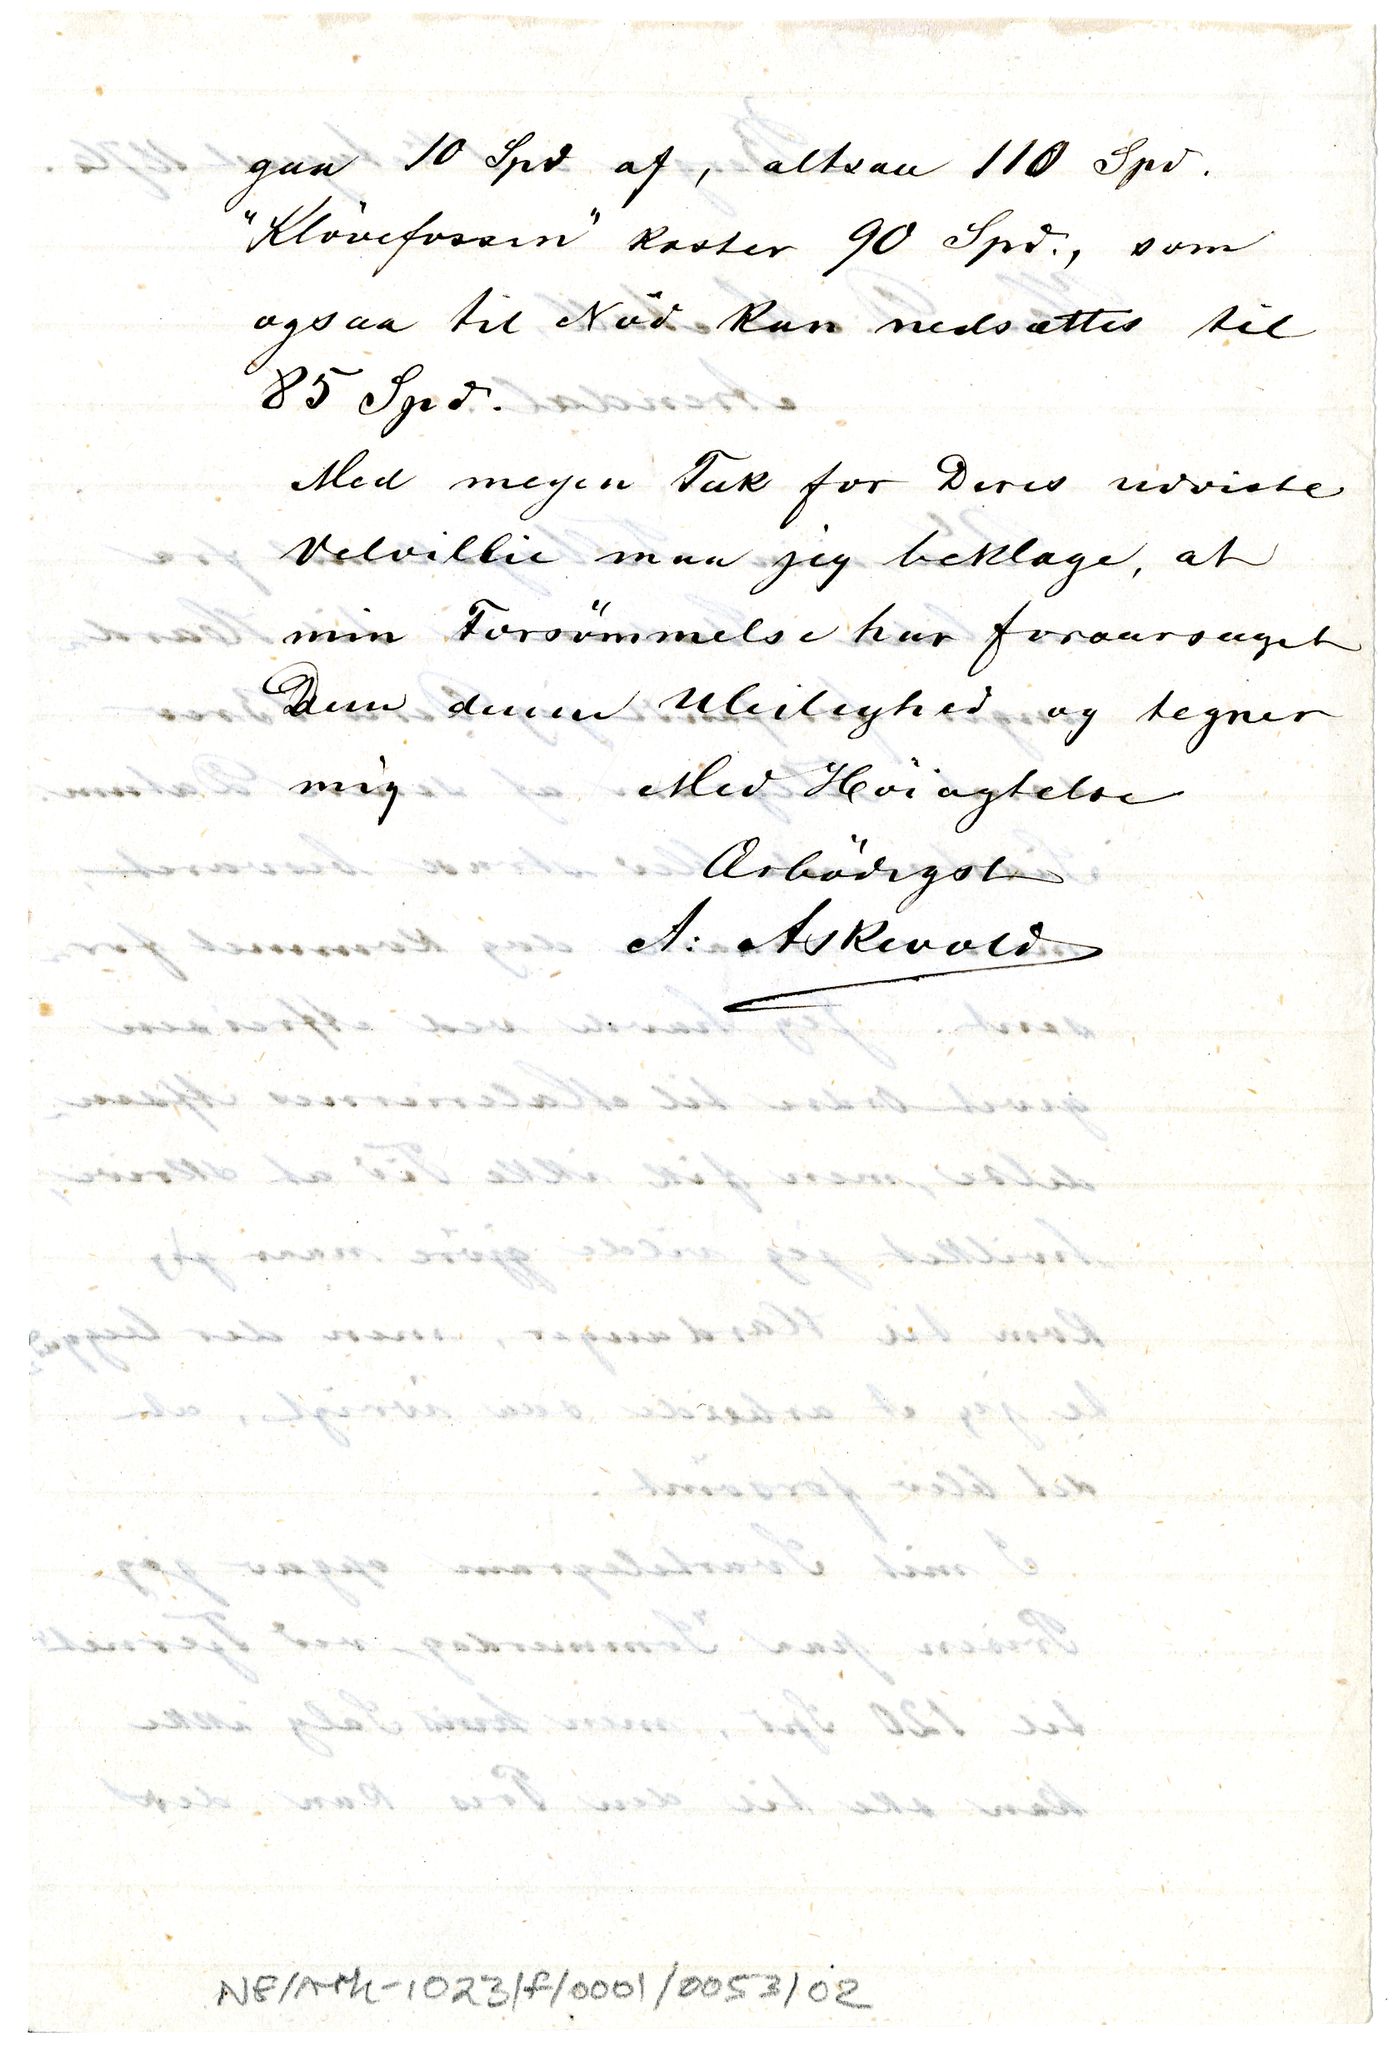 gaa 10 Spd af, altsaa 110 Spd.
"Klövefossen" koster 90 Spd., som
ogsaa til Nöd kan nedsættes til
85 Spd.
Med megen Tak for Deres udviste
Velvillie maa jeg beklage, at
min Forsömmelse har foraarsaget
Dem denne Uleilighed og tegner
mig Med Höiagtelse
Ærbödigst
A: Askevold
NF/Ark-1023/f/0001/0053/02